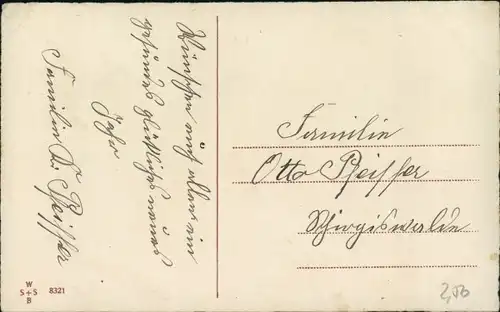 Wünschen auch allen ein
gesundes glückliches neues
Jahr
Familie K. Pfeiffer
Familie
Otto Pfeiffer
Schirgiswalde
W
S+S
B
8321
2,50